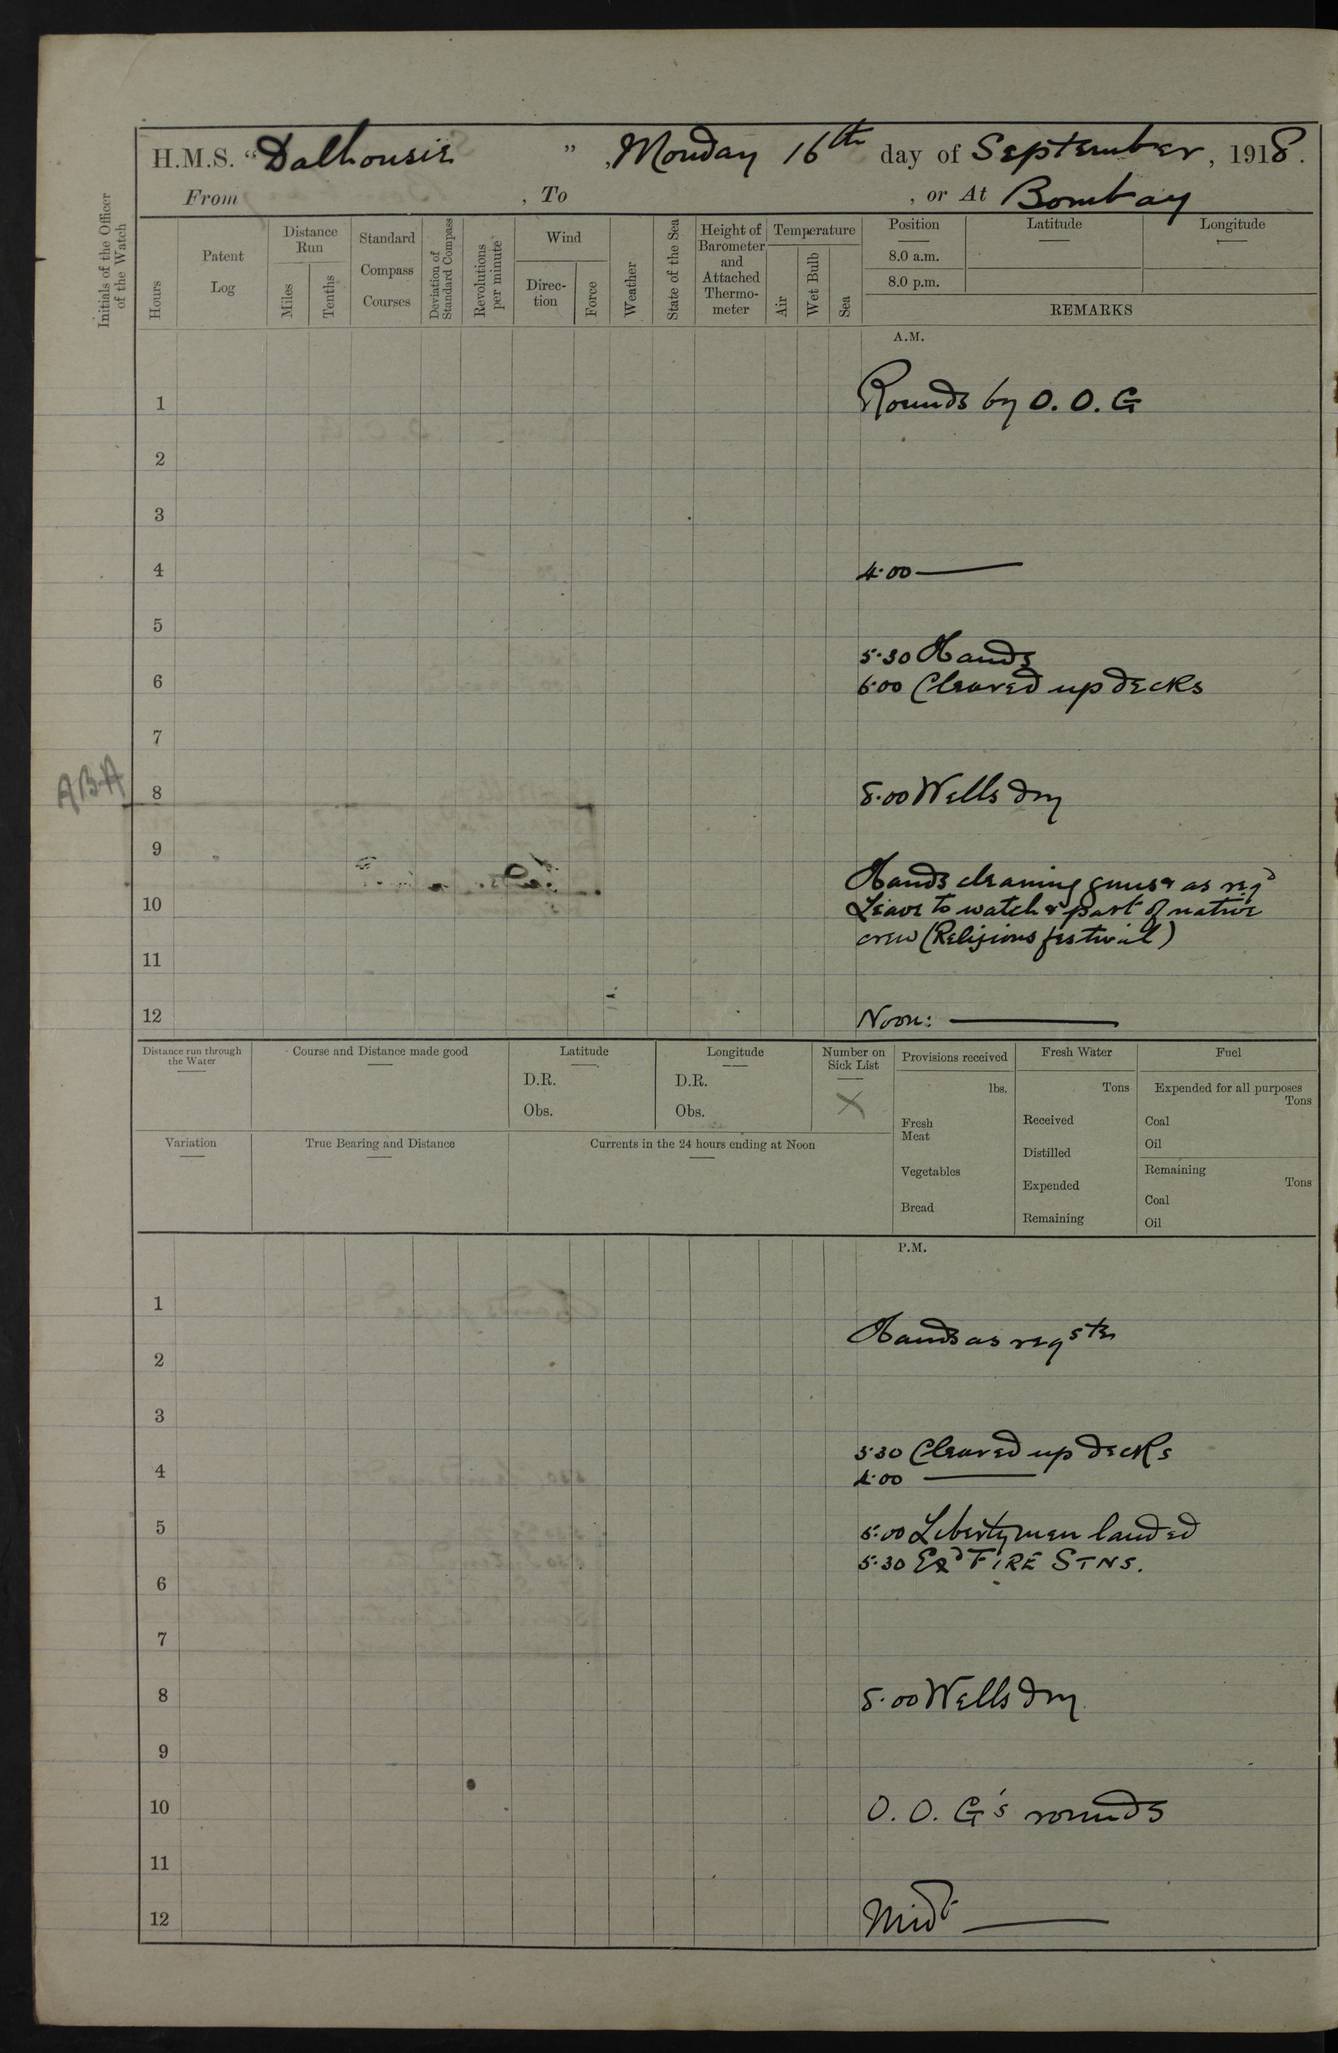 H.M.S. "Dalhousie", Monday 16th day of September, 1918.
From , To , or At Bombay
Initials of the Officer of the Watch
Hours
Patent Log
Distance Run
Miles
Tenths
Standard Compass Courses
Deviation of Standard Compass
Revolutions per minute
Wind
Direc-tion
Force
Weather
State of the Sea
Height of Barometer and Attached Thermo-meter
Temperature
Air
Wet Bulb
Sea
Position
Latitude
Longitude
8.0 a.m.
8.0 p.m.
REMARKS
A.M.
1 Rounds by O.O.G
2
3
4 4.00
5
5.30 Hands
6 6.00 Cleared up decks
7
ABA
8 8.00 Wells dry
9
Hands cleaning guns & as reqd
10 Leave to watch & part of native
crew (Religious festival)
11
12 Noon:
Distance run through the Water
Course and Distance made good
Latitude
D.R.
Obs.
Longitude
D.R.
Obs.
Number on Sick List
X
Provisions received
lbs.
Fresh Meat
Vegetables
Bread
Fresh Water
Tons
Received
Distilled
Expended
Remaining
Fuel
Expended for all purposes
Tons
Coal
Oil
Remaining
Tons
Coal
Oil
Variation
True Bearing and Distance
Currents in the 24 hours ending at Noon
P.M.
1
Hands as reqste
2
3
3.30 Cleared up decks
4 4.00
5 5.00 Libertymen landed
5.30 Exd FIRE STNS.
6
7
8 8.00 Wells dry
9
10 O.O.G's rounds
11
12 Midt